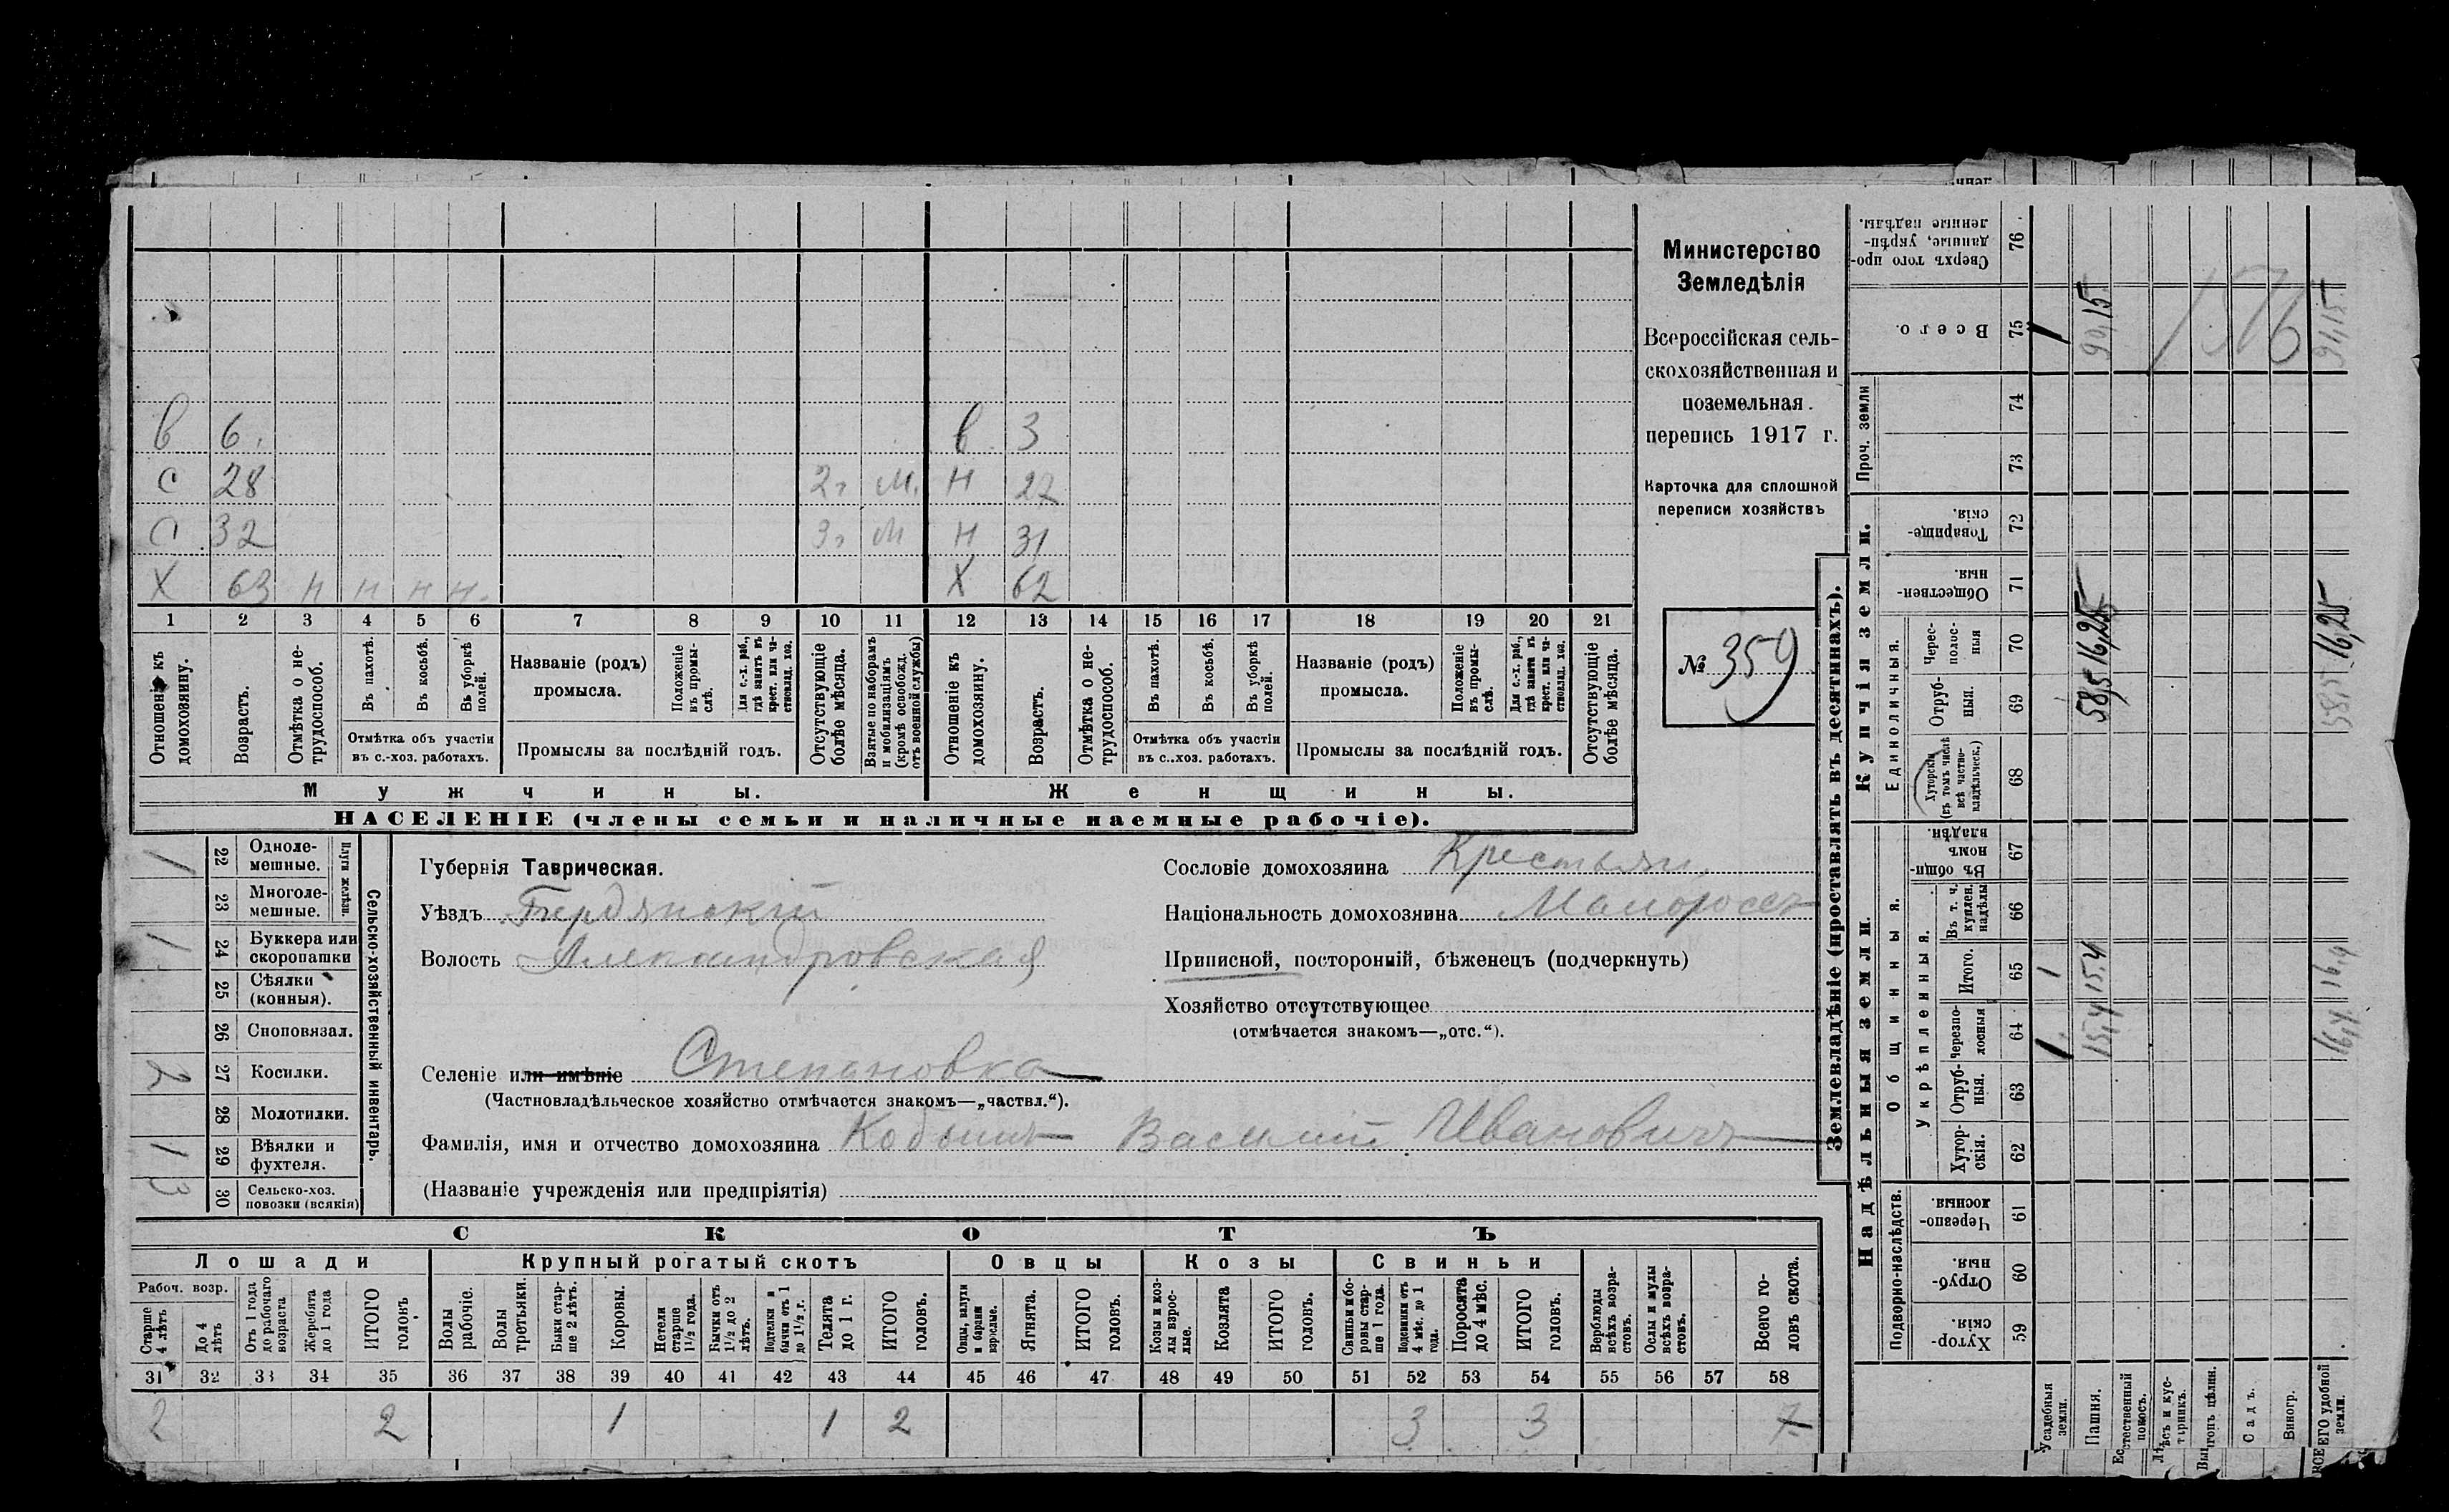 Министерство
Земледѣлія
Всероссійская сель-
скохозяйственная и
поземельная
перепись 1917 г.
Карточка для сплошной
переписи хозяйствъ
№ 359
в 6 в 3
с 28 2г м. н 27
с 32 3г м н 31
х 63 н н н н х 62
1 2 3 4 5 6 7 8 9 10 11 12 13 14 15 16 17 18 19 20 21
Отношеніе къ домохозяину.
Возрастъ.
Отмѣтка о не-трудоспособ.
Въ пахотѣ.
Въ косьбѣ.
Въ уборкѣ полей.
Отмѣтка объ участіи
въ с.-хоз. работахъ.
Названіе (родъ)
промысла.
Положеніе въ промы-слѣ.
Для с.-х. раб., гдѣ занятъ въ крест. или ча-стновлад. хоз.
Промыслы за послѣдній годъ.
Отсутствующіе болѣе мѣсяца.
Взятые по наборамъ и мобилизаціямъ (кромѣ освобожд. отъ военной службы)
Отношеніе къ домохозяину.
Возрастъ.
Отмѣтка о не-трудоспособ.
Въ пахотѣ.
Въ косьбѣ.
Въ уборкѣ полей.
Отмѣтка объ участіи
въ с.-хоз. работахъ.
Названіе (родъ)
промысла.
Положеніе въ промы-слѣ.
Для с.-х. раб., гдѣ занята въ крест. или ча-стновлад. хоз.
Промыслы за послѣдній годъ.
Отсутствующіе болѣе мѣсяца.
Мужчины. Женщины.
НАСЕЛЕНІЕ (члены семьи и наличные наемные рабочіе).
Сельско-хозяйственный инвентарь.
Плуги желѣзн.
1 22 Одноле-мешные.
23 Многоле-мешные.
1 24 Буккера или скоропашки
25 Сѣялки (конныя).
26 Сноповязал.
2 27 Косилки.
28 Молотилки.
1 29 Вѣялки и фухтеля.
3 30 Сельско-хоз. повозки (всякія)
Губернія Таврическая.
Уѣздъ Бердянскій
Волость Александровская
Селеніе или имѣніе Степановка
(Частновладѣльческое хозяйство отмѣчается знакомъ—„частвл.“).
Сословіе домохозяина Крестьян
Національность домохозяина Малоросс
Приписной, посторонній, бѣженецъ (подчеркнуть)
Хозяйство отсутствующее
(отмѣчается знакомъ—„отс.“).
Фамилія, имя и отчество домохозяина Василий Иванович
(Названіе учрежденія или предпріятія)
СКОТЪ
Лошади Крупный рогатый скотъ Овцы Козы Свиньи
Рабоч. возр.
Старше 4 лѣтъ
До 4 лѣтъ
Отъ 1 года до рабочаго возраста
Жеребята до 1 года
ИТОГО головъ
Волы рабочіе.
Волы третьяки.
Быки стар-ше 2 лѣтъ.
Коровы.
Нетели старше 1½ года.
Бычки отъ 1½ до 2 лѣтъ.
Подтелки и бычки отъ 1 до 1½ г.
Телята до 1 г.
ИТОГО головъ.
Овцы, валухи и бараны взрослые.
Ягнята.
ИТОГО головъ.
Козы и коз-лы взрос-лые.
Козлята
ИТОГО головъ.
Свиньи и бо-ровы стар-ше 1 года.
Подсвинки отъ 4 мѣс. до 1 года.
Поросята до 4 мѣс.
ИТОГО головъ.
Верблюды всѣхъ возра-стовъ.
Ослы и мулы всѣхъ возра-стовъ.
Всего го-ловъ скота.
31 32 33 34 35 36 37 38 39 40 41 42 43 44 45 46 47 48 49 50 51 52 53 54 55 56 57 58
2 2 1 1 2 3 3 7
Землевладѣніе (проставлять въ десятинахъ).
Надѣльныя земли. Купчія земли.
Подворно-наслѣдств.
Общинныя.
Укрѣпленныя.
Единоличныя.
Проч. земли
Хутор-скія. 59
Отруб-ныя. 60
Черезпо-лосныя. 61
Хутор-скія. 62
Отруб-ныя. 63
Черезпо-лосныя 64
Итого. 65
Въ т. ч. куплен. надѣлы 66
Въ общин-номъ владѣн. 67
Хуторскія (въ томъ числѣ всѣ частно-владѣльческ.) 68
Отруб-ныя. 69
Черес-полос-ныя 70
Обществен-ныя 71
Товарище-скія. 72
73
74
Всего. 75
Сверхъ того про-данные, укрѣп-ленные надѣлы. 76
Усадебныя земли. 1 1 1
Пашня. 15,4 15,4 58,5 16,25 90,15
Естественный покосъ.
Лѣсъ и кус-тарникъ.
Выгонъ цѣлин.
Садъ.
Виногр.
ВСЕГО удобной земли. 16,4 16,4 58,5 16,25 91,15
1516